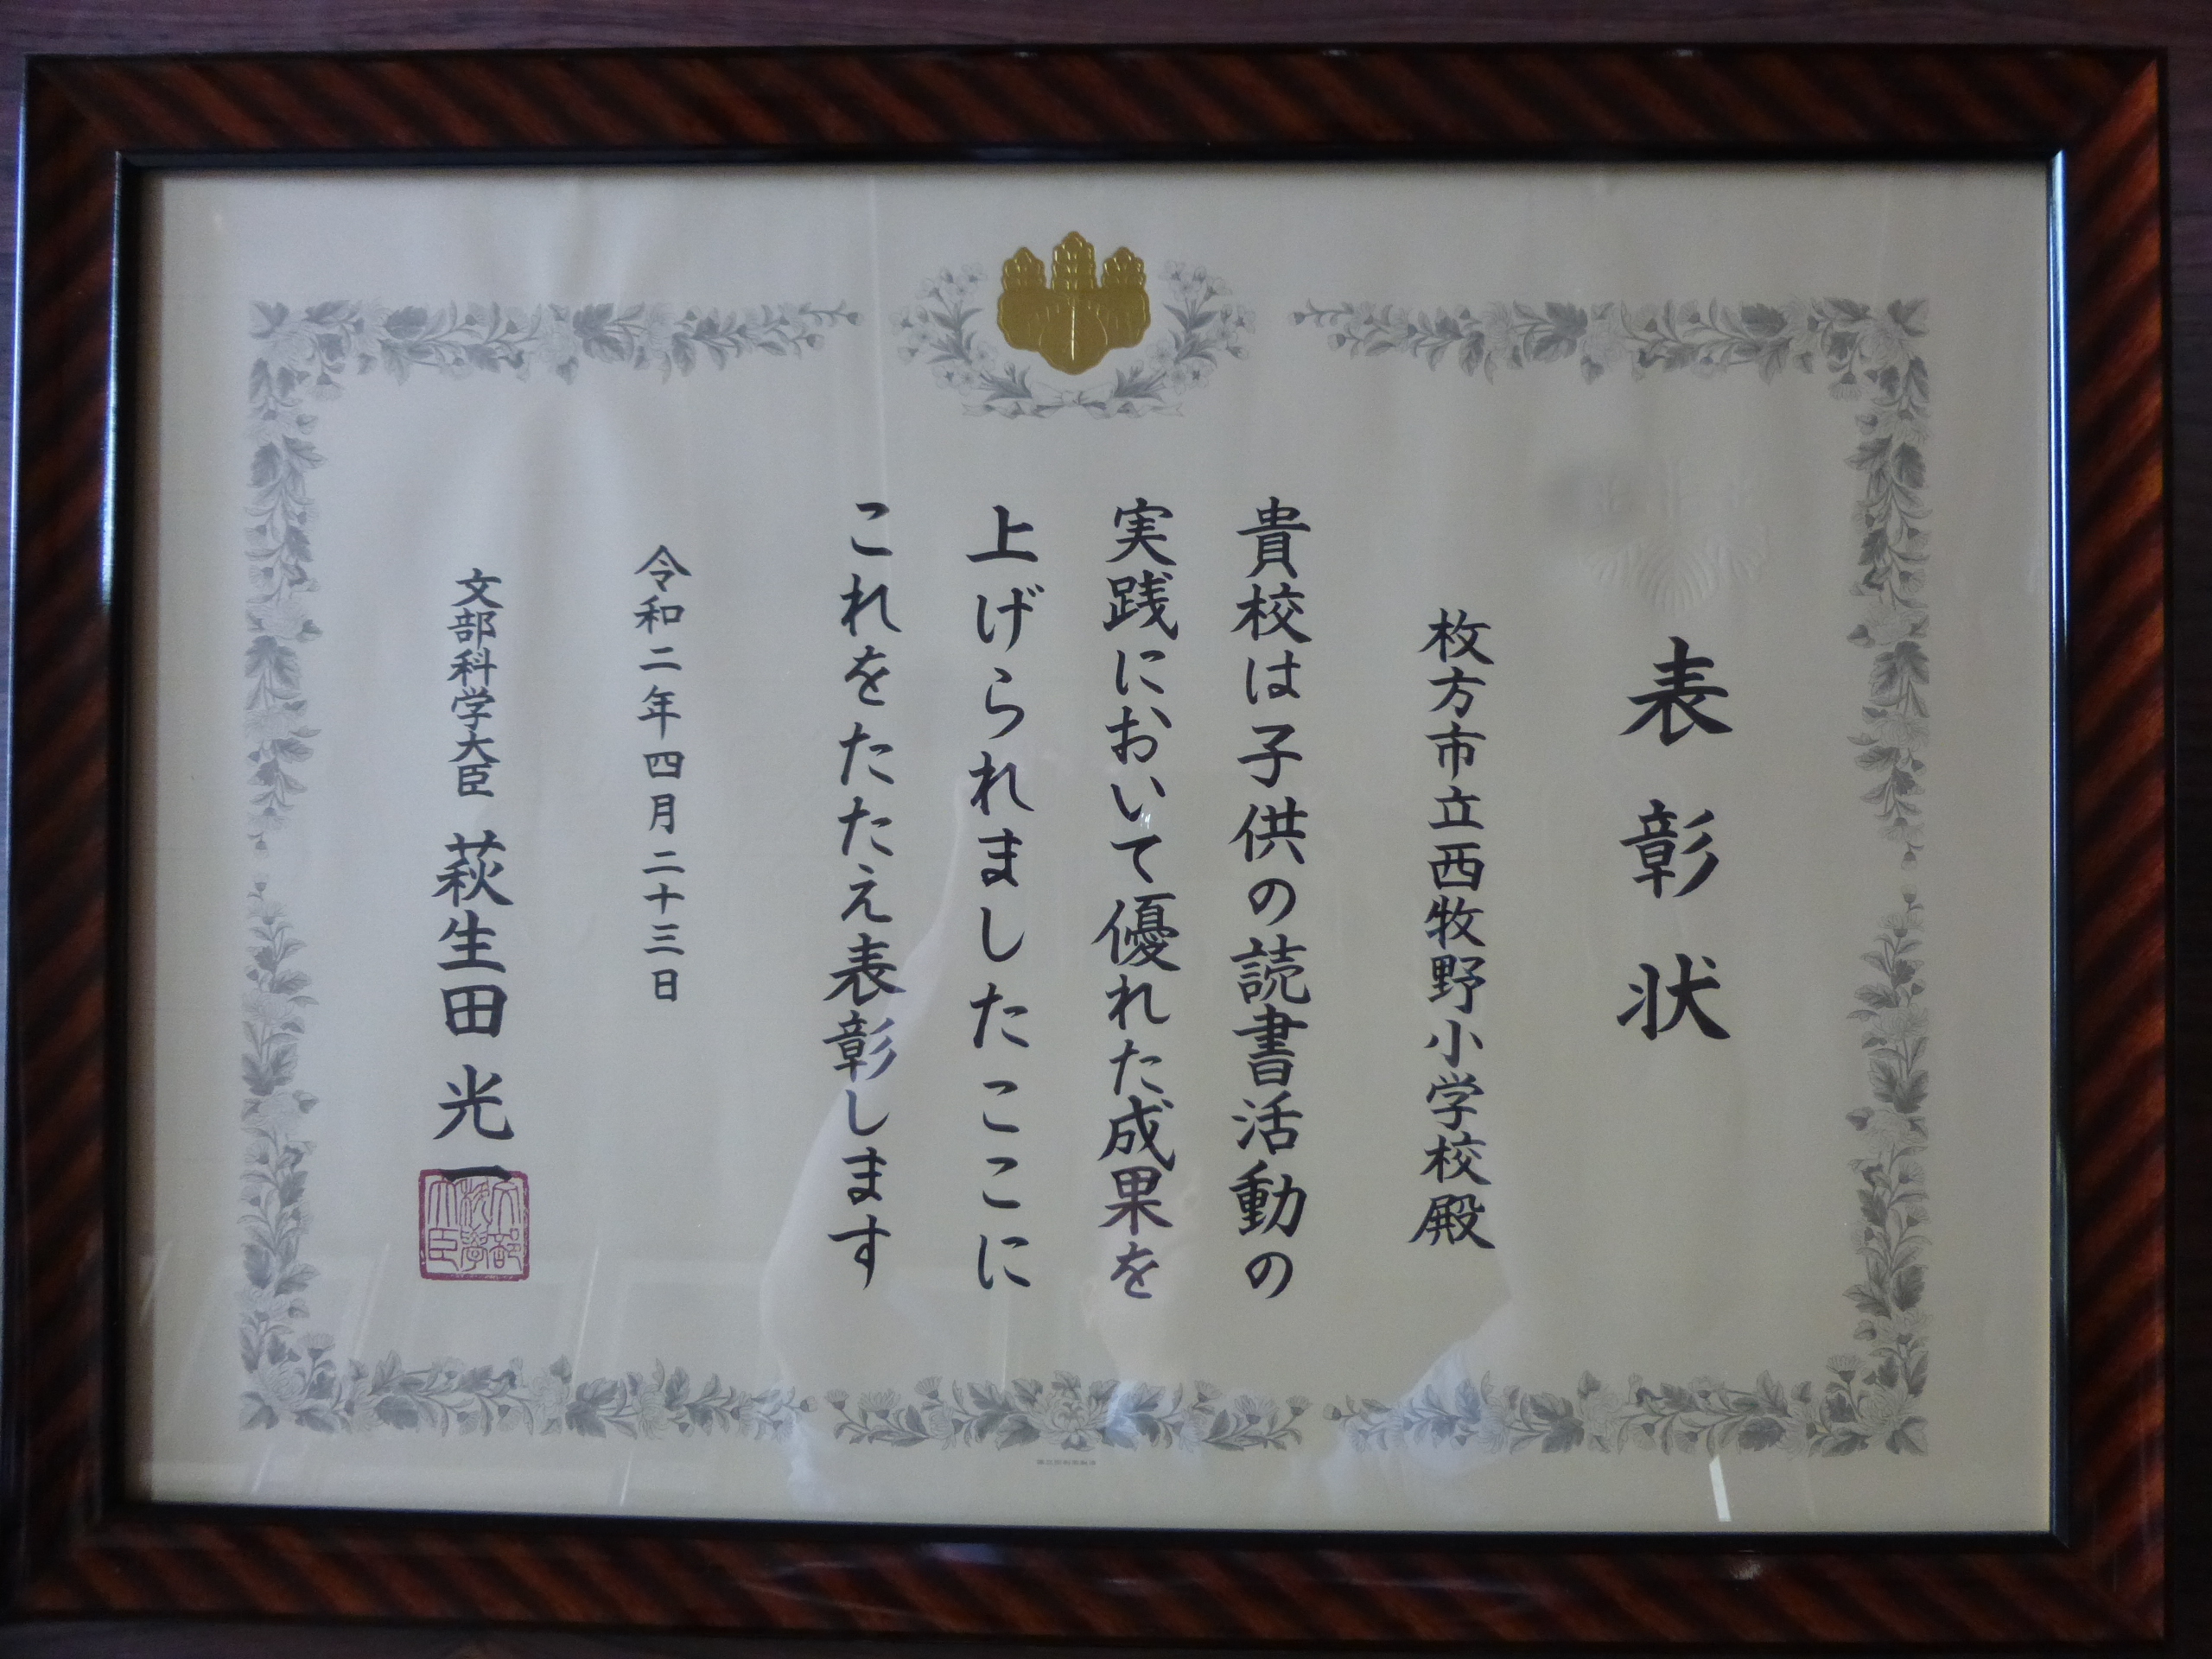 表彰状
枚方市立西牧野小学校殿
貴校は子供の読書活動の
実践において優れた成果を
上げられましたここに
これをたたえ表彰します
令和二年四月二十三日
文部科学大臣 萩生田光一
文部科学大臣